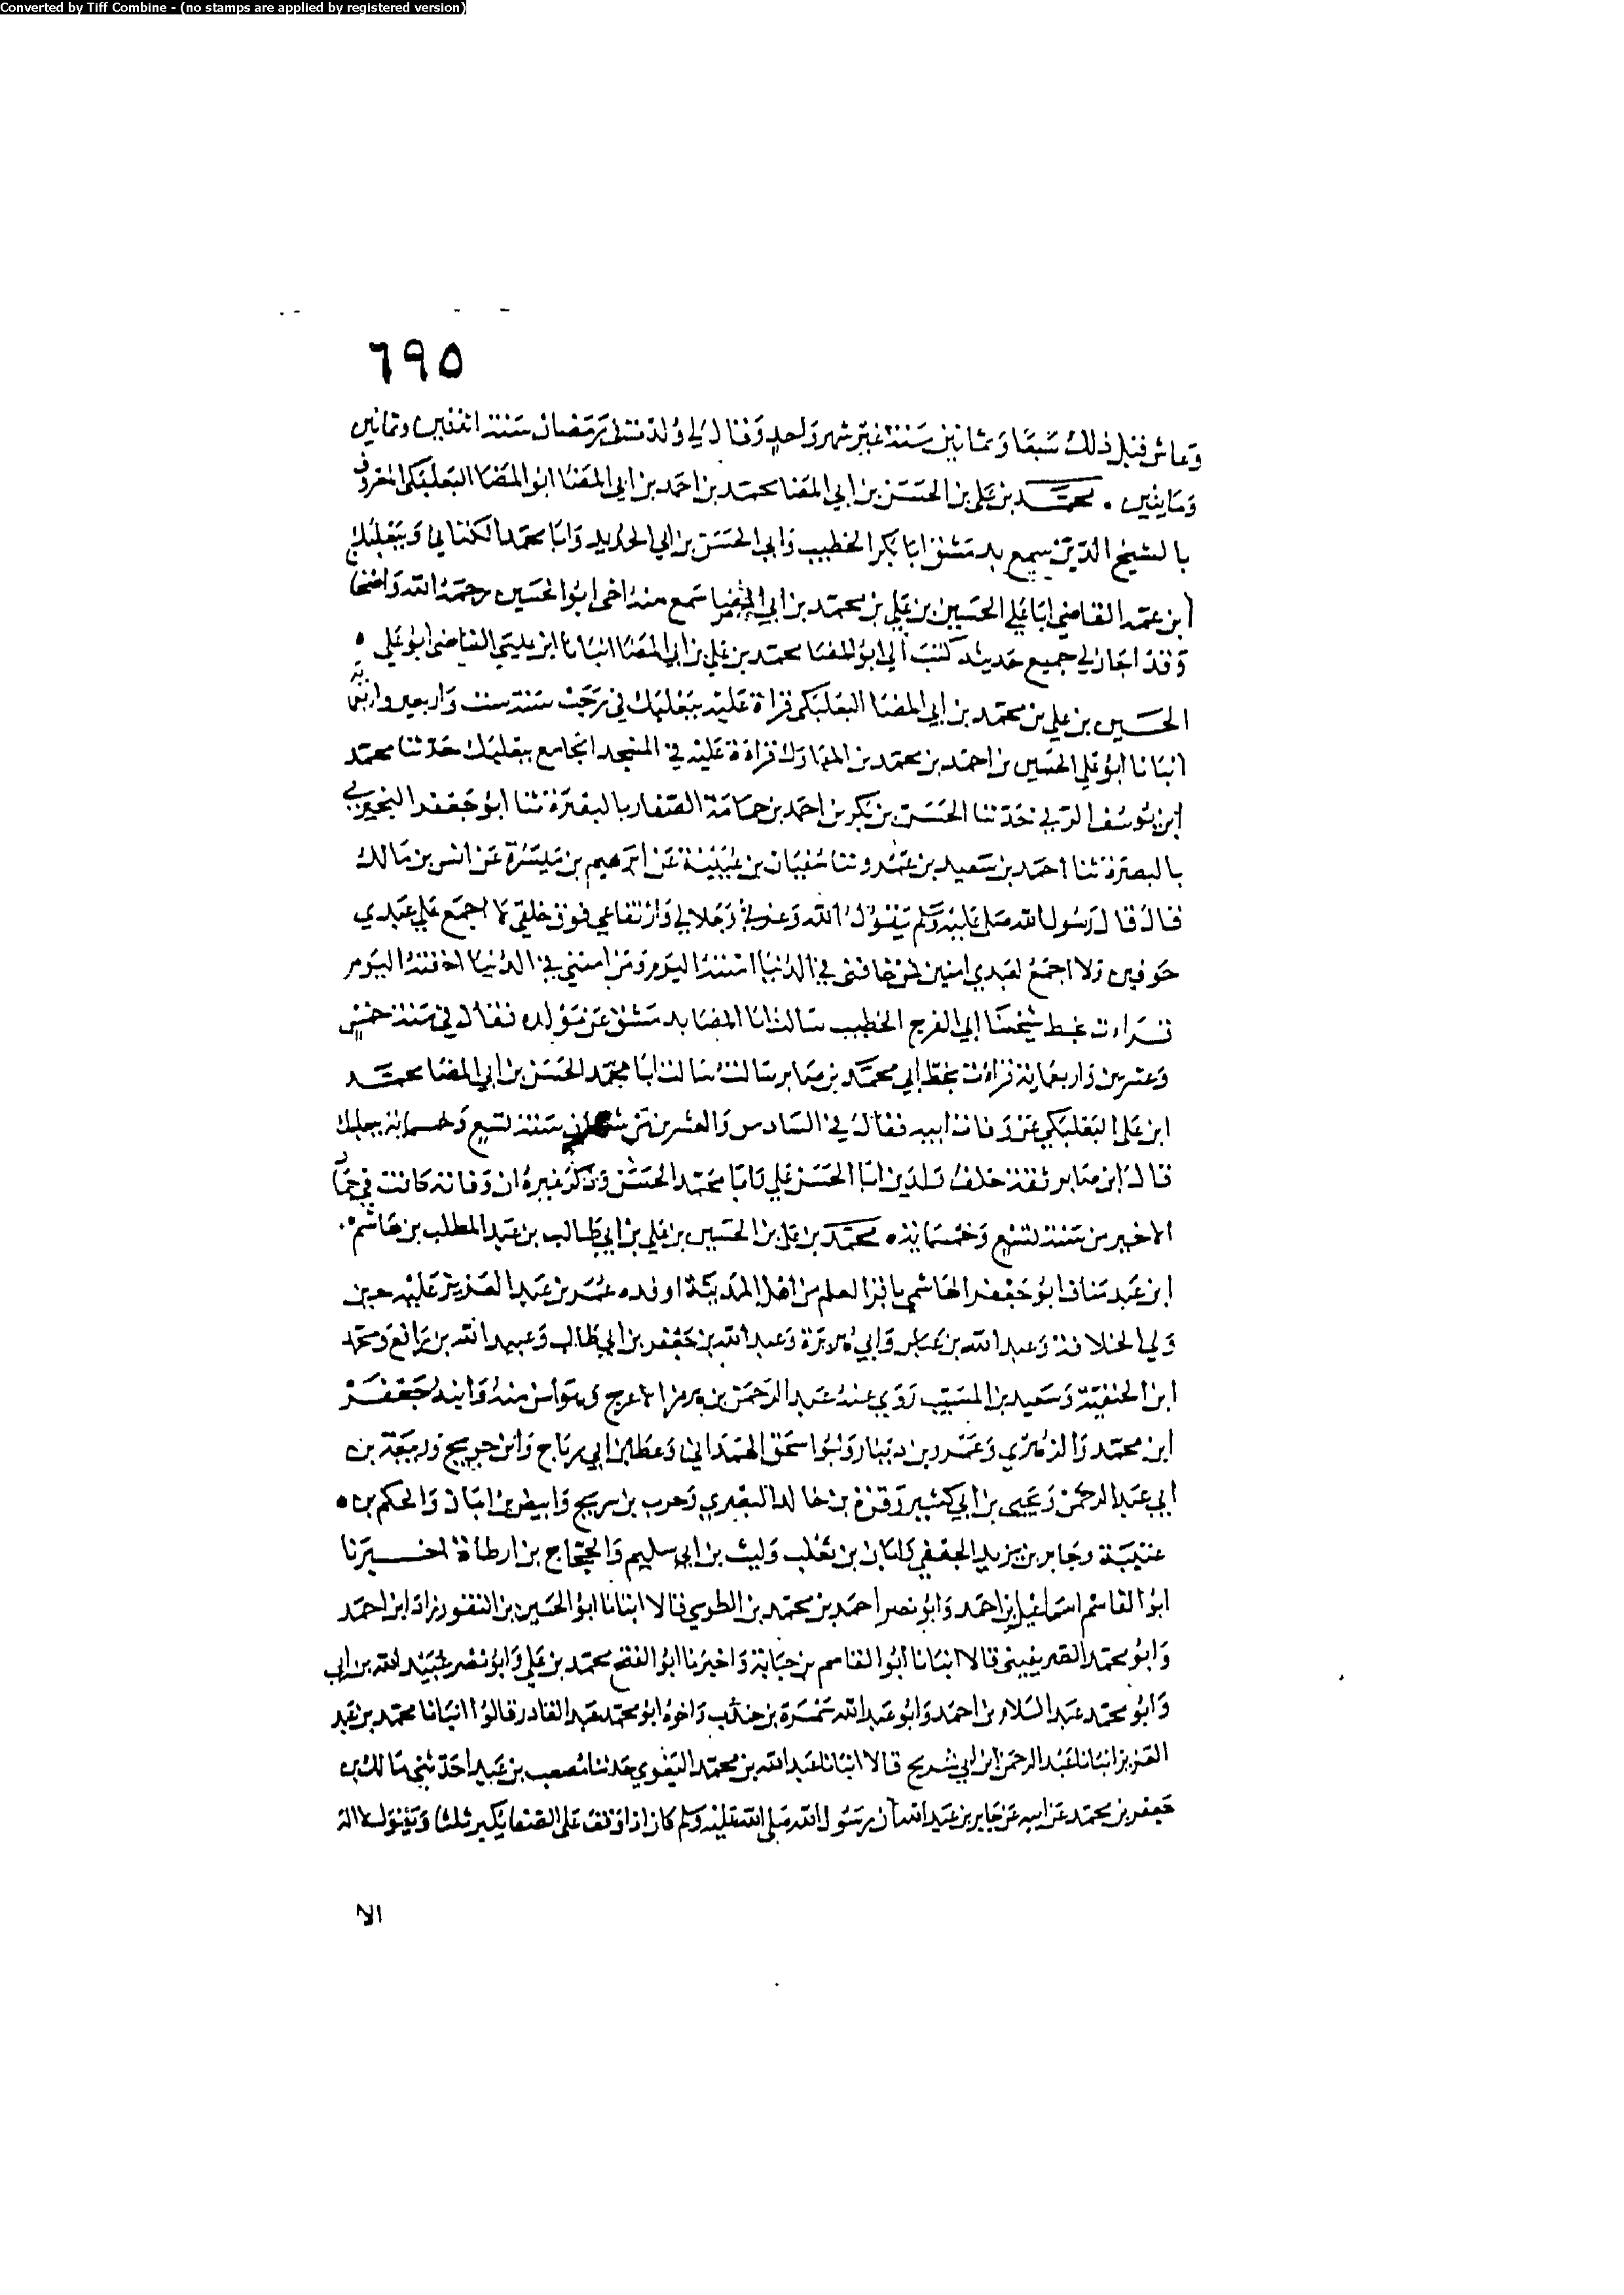 Converted by Tiff Combine - (no stamps are applied by registered version)
٦٩٥
وعاش قبل ذلك سبعا وثمانين سنة غير شهر واحد وقال لي ولدت في رمضان سنة اثنتين وثمانين
ومايتين . محمد بن علي بن الحسن بن ابي المضا محمد بن احمد بن ابي المضا ابو المضا البعلبكي المعروف
بالشيخ الدين سمع بدمشق ابا بكر الخطيب وابي الحسن بن ابي الحديد وابا محمد الكتاني وببعلبك
ابن عمه القاضي ابا علي الحسين بن علي بن محمد بن ابي المضا سمع منه اخي ابو الحسين رحمه الله
وقد اجاز لي جميع حديثه كتب الي ابو المضا محمد بن علي بن ابي المضا انبانا ابن عمي القاضي ابو علي ه
الحسين بن علي بن محمد بن ابي المضا البعلبكي قراة عليه ببعلبك في رجب سنة ست واربعين واربعماية
انبانا ابو علي الحسين بن احمد بن محمد بن المبارك قراة عليه في المسجد الجامع ببعلبك حدثنا محمد
ابن يوسف حدثنا الحسن بن بكر بن احمد بن حمامة الصفار بالبصرة ثنا ابو جعفر البحيري
بالبصرة ثنا احمد بن سعيد بن عمرو ثنا سفيان بن عيينة عن ابرهيم بن ميسرة عن انس بن مالك
قال قال رسول الله صلى عليه وسلم يقول الله وعزتي وجلالي وارتفاعي فوق خلقي لا اجمع علي عبدي
خوفين ولا اجمع لعبدي امنين فمن خافني في الدنيا امنته اليوم ومن امنني في الدنيا اخفته اليوم
قرات بخط شيخنا ابي الفرج الخطيب سالت ابا المضا بدمشق عن مولده فقال في سنة خمس
وعشرين واربعماية قرات بخط ابي محمد بن صابر سالت ابا محمد الحسن بن ابي المضا محمد
ابن علي البعلبكي عن وفاة ابيه فقال في السادس والعشرين من شعبان سنة تسع وخمسماية ببعلبك
قال ابن صابر ثقة خلف ولدين ابا الحسن علي وابا محمد الحسن وذكر غيره ان وفاته كانت في جما
الاخير من سنة تسع وخمسماية ه محمد بن علي بن الحسين بن علي بن ابي طالب بن عبد المطلب بن هاشم .
ابن عبد مناف ابو جعفر الهاشمي باقر العلم من اهل المدينة اوفده عمر بن عبد العزيز عليه حين
ولي الخلافة وعبد الله بن عباس وابي هريرة وعبد الله بن جعفر بن ابي طالب وعبيد الله بن رافع ومحمد
ابن الحنفية وسعيد بن المسيب روي عنه عبد الرحمن بن هرمز الاعرج وهو اسن منه وابنه جعفر
ابن محمد والزهري وعمرو بن دينار وابو اسحق الهمداني وعطا بن ابي رباح وابن جريج وربيعة بن
ابي عبد الرحمن ويحيى بن ابي كثير وقرة بن خالد البصري وحرب بن سريج وابيض بن ابان والحكم بن ه
عتيبة وجابر بن يزيد الجعفي وابان بن تغلب وليث بن ابي سليم والحجاج بن ارطاة اخبرنا
ابو القاسم اسماعيل بن احمد وابو نصر احمد بن محمد بن الطوسي قالا انبانا ابو الحسين بن النقور زاد ابن احمد
وابو محمد الصريفيني قالا انبانا ابو القاسم بن حبابة واخبرنا ابو الفتح محمد بن علي وابو نصر عبيد الله بن ابي
وابو محمد عبد السلام بن احمد وابو عبد الله سمرة بن جندب واخوه ابو محمد عبد القادر قالوا انبانا محمد بن عبد
العزيز انبانا عبد الرحمن بن ابي شريح قالا انبانا عبد الله بن محمد البغوي حدثنا مصعب بن عبد الله حدثني مالك بن
جعفر بن محمد عن ابيه عن جابر بن عبد الله ان رسول الله صلى الله عليه وسلم كان اذا وقف على الصفا يكبر ثلثا ويقول لا اله
الا